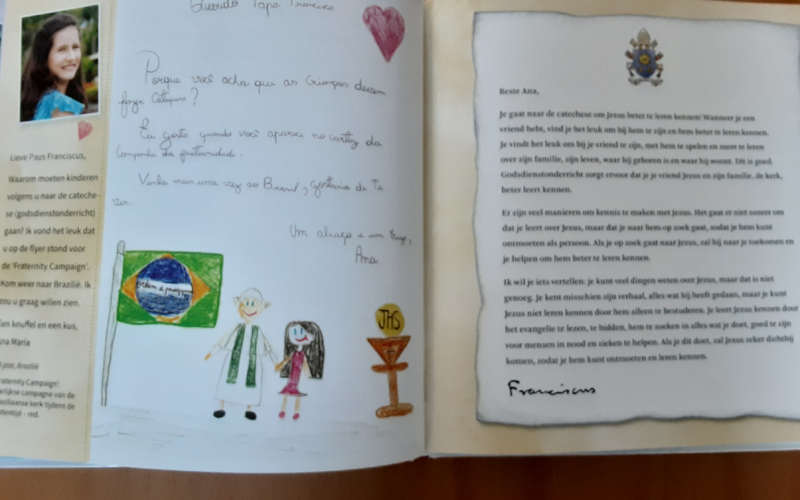 Lieve Paus Franciscus,
Waarom moeten kinderen
volgens u naar de cateche-
se (godsdienstonderricht)
gaan? Ik vond het leuk dat
u op de flyer stond voor
de 'Fraternity Campaign'.
Kom weer naar Brazilië. Ik
zou u graag willen zien.
Een knuffel en een kus,
Ana Maria
jaar, Brazilië
Fraternity Campaign:
campagne van de
kerk tijdens de
– red.
Querido Papa Francisco
Porque você acha que as crianças devem
fazer Catequese?
Eu gosto quando você aparece no cartaz da
Campanha da fraternidade.
Venha mais uma vez ao Brasil, gostaria de te
ver.
Um abraço e um beijo,
Ana
JHS
Beste Ana,
Je gaat naar de catechese om Jezus beter te leren kennen! Wanneer je een
vriend hebt, vind je het leuk om bij hem te zijn en hem beter te leren kennen.
Je vindt het leuk om bij je vriend te zijn, met hem te spelen en meer te leren
over zijn familie, zijn leven, waar hij geboren is en waar hij woont. Dit is goed.
Godsdienstonderricht zorgt ervoor dat je je vriend Jezus en zijn familie, de kerk,
beter leert kennen.
Er zijn veel manieren om kennis te maken met Jezus. Het gaat er niet zozeer om
dat je leert over Jezus, maar dat je naar hem op zoek gaat, zodat je hem kunt
ontmoeten als persoon. Als je op zoek gaat naar Jezus, zal hij naar je toekomen en
je helpen om hem beter te leren kennen.
Ik wil je iets vertellen: je kunt veel dingen weten over Jezus, maar dat is niet
genoeg. Je kent misschien zijn verhaal, alles wat hij heeft gedaan, maar je kunt
Jezus niet leren kennen door hem alleen te bestuderen. Je leert Jezus kennen door
het evangelie te lezen, te bidden, hem te zoeken in alles wat je doet, goed te zijn
voor mensen in nood en zieken te helpen. Als je dit doet, zal Jezus zeker dichtbij
komen, zodat je hem kunt ontmoeten en leren kennen.
Franciscus